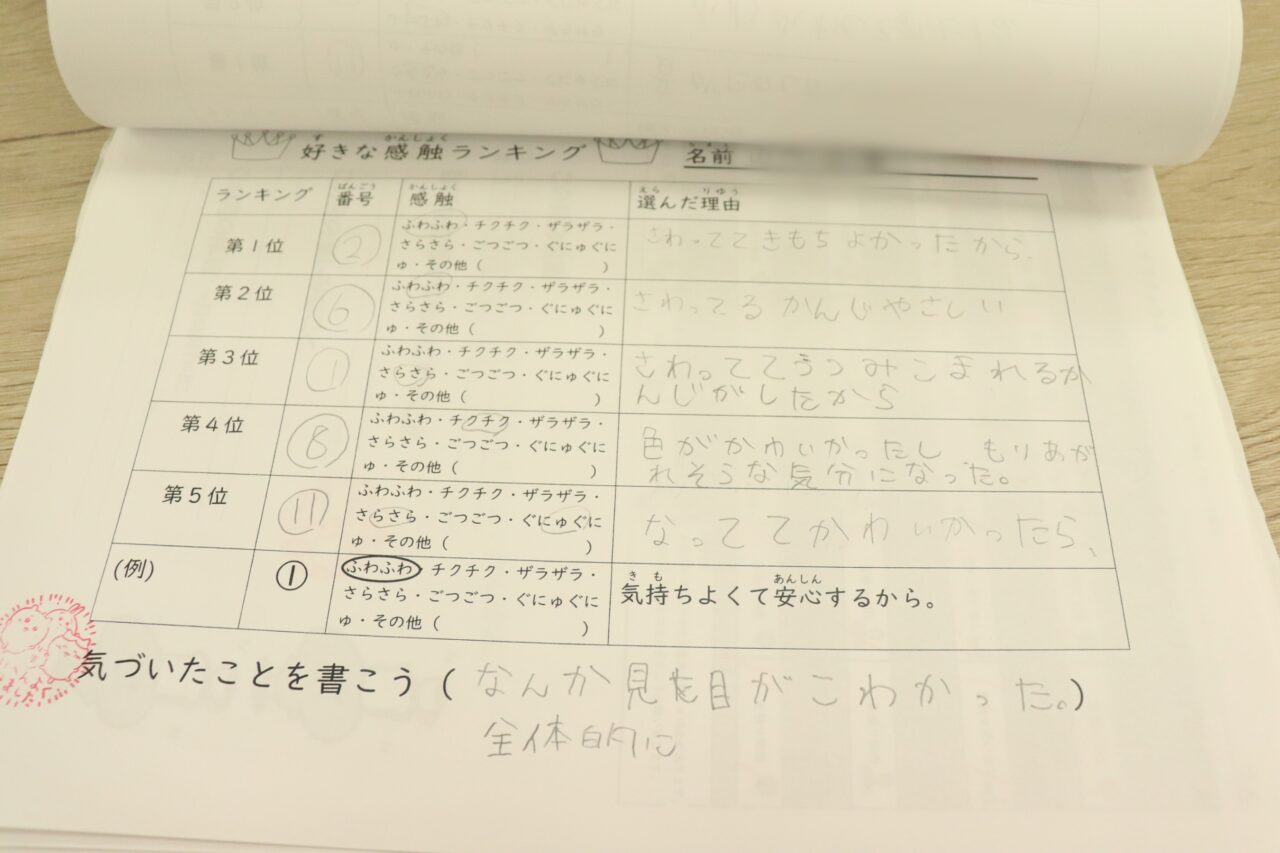 好きな感触ランキング 名前
すかんしょく
ランキング 番号 感触 選んだ理由
ばんごう かんしょく えら りゆう
第1位 ② ふわふわ・チクチク・ザラザラ・
さらさら・ごつごつ・ぐにゅぐに
ゅ・その他( )
さわっててきもちよかったから、
第2位 ⑥ ふわふわ・チクチク・ザラザラ・
さらさら・ごつごつ・ぐにゅぐに
ゅ・その他( )
さわってるかんじやさしい
第3位 ① ふわふわ・チクチク・ザラザラ・
さらさら・ごつごつ・ぐにゅぐに
ゅ・その他( )
さわっててうつみこまれるか
んじがしたから
第4位 ⑧ ふわふわ・チクチク・ザラザラ・
さらさら・ごつごつ・ぐにゅぐに
ゅ・その他( )
色がかわいかったし もりあが
れそうな気分になった。
第5位 ⑪ ふわふわ・チクチク・ザラザラ・
さらさら・ごつごつ・ぐにゅぐに
ゅ・その他( )
なっててかわいかったら、
(例) ① ふわふわ・チクチク・ザラザラ・
さらさら・ごつごつ・ぐにゅぐに
ゅ・その他( )
きも あんしん
気持ちよくて安心するから。
気づいたことを書こう(なんか見た目がこわかった。)
全体的に